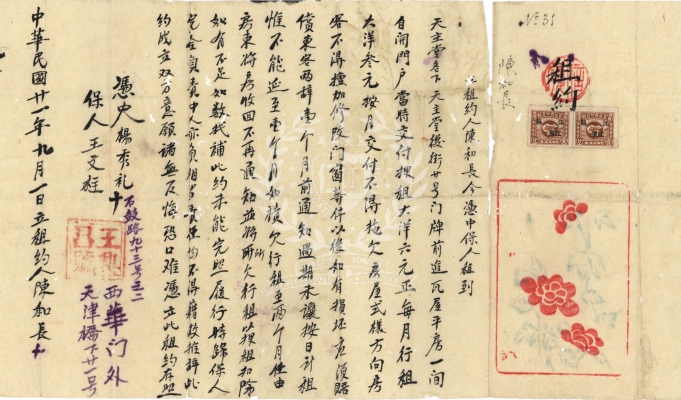 No 31
租約
陳和長
立租約人陳和長今憑中保人租到
天主堂名下天主堂後街廿号门牌前進瓦屋平房一间
自開门戶當時交付押租大洋六元正每月行租
大洋叁元按月交付不得拖欠房屋式樣方向房
客不得擅加修改门窗等件以後如有損坏
償東客兩辞壹个月前通知過期未讓按日計租
惟不能延至壹个月如積欠行租至兩个月任由
房東將房收回不再通知並將所欠行租以押租扣除
如有不足如数找補此约未能完照履行時歸保人
完全負責中人亦負相当責任均不得藉故推诿此
约成立双方意願諸無反悔恐口难憑立此租約存照
憑中 楊秀礼 十
保人 王文雄
石鼓路九十三号之二
西華门外
天津橋下廿一号
中華民國廿一年九月一日立租約人陳和長 十